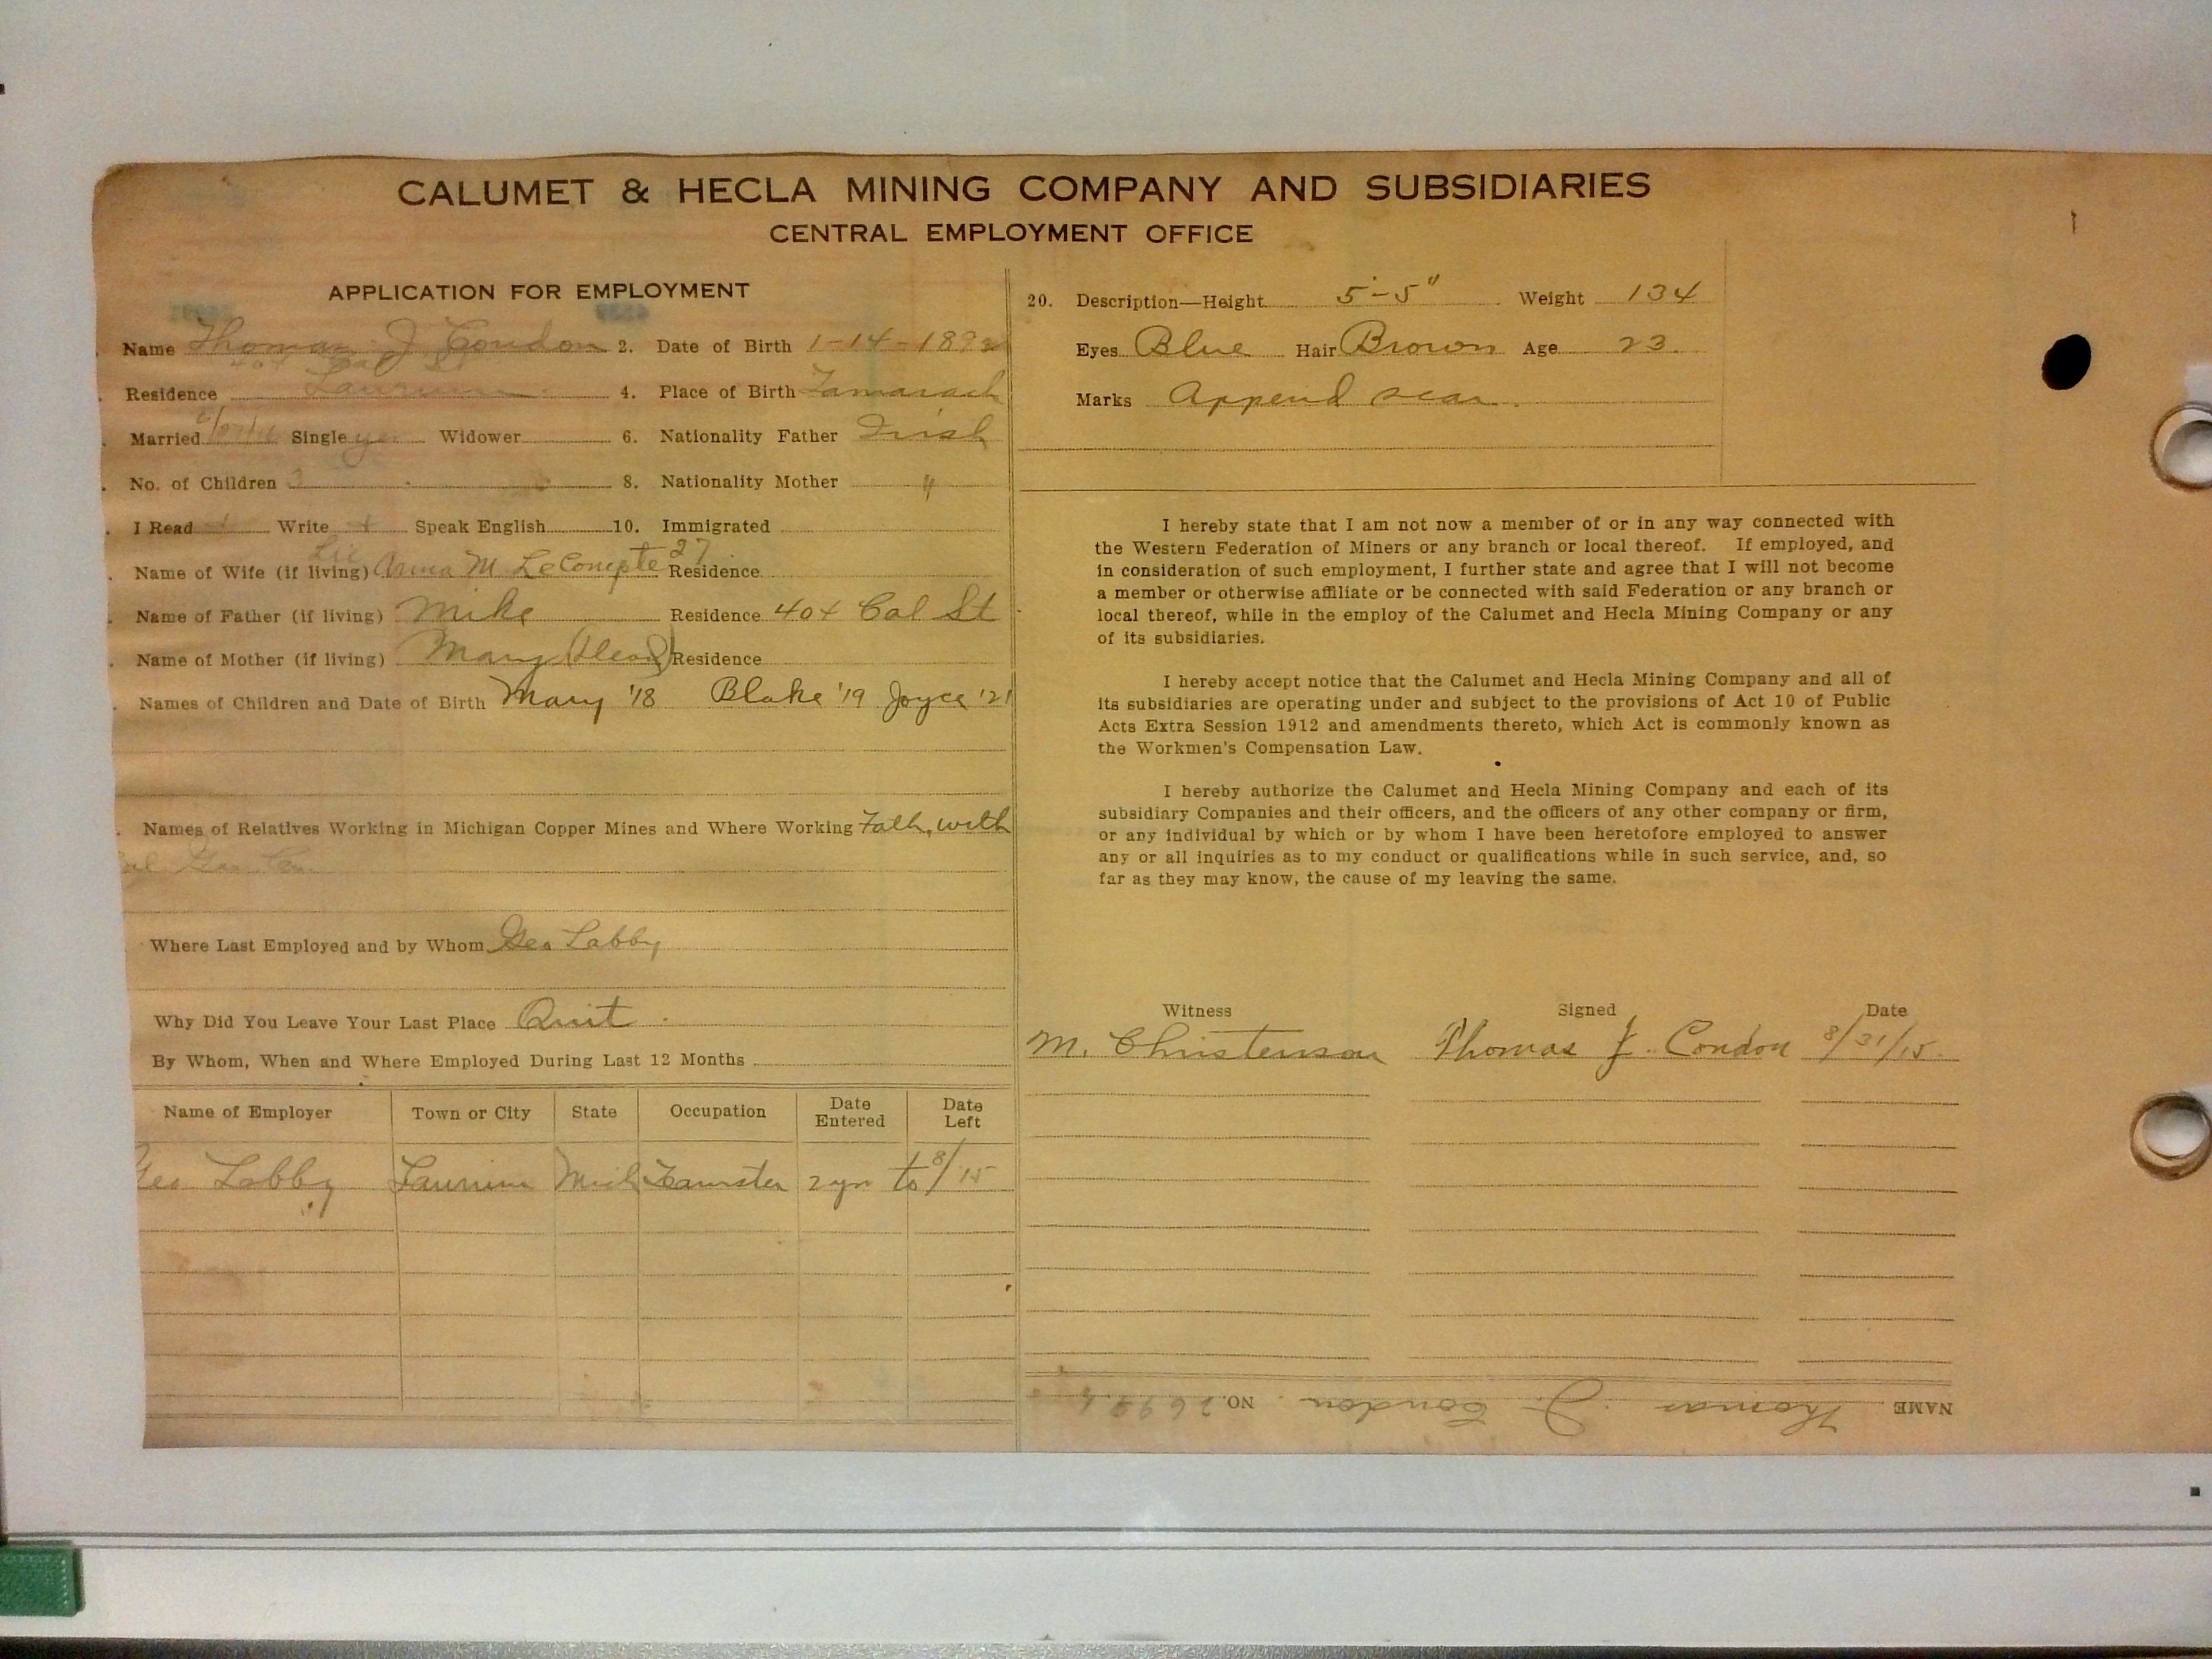 CALUMET & HECLA MINING COMPANY AND SUBSIDIARIES
CENTRAL EMPLOYMENT OFFICE
APPLICATION FOR EMPLOYMENT
Name Thomas J Condon 2. Date of Birth 1-14-1892
404 Cal St
Residence Laurium 4. Place of Birth Tamarack
Married Single yes Widower 6. Nationality Father Irish
No. of Children 3 8. Nationality Mother "
I Read Write Speak English 10. Immigrated
Name of Wife (if living) Anna M LeCompte 27 Residence
Name of Father (if living) Mike Residence 404 Cal St
Name of Mother (if living) Mary (Dead) Residence
Names of Children and Date of Birth Mary '18 Blake '19 Joyce '21
Names of Relatives Working in Michigan Copper Mines and Where Working Fath. with
Gas Co.
Where Last Employed and by Whom Geo Labby
Why Did You Leave Your Last Place Quit.
By Whom, When and Where Employed During Last 12 Months
Name of Employer Town or City State Occupation Date Entered Date Left
Geo Labby Laurium Mich Teamster 2 yrs to 8/15
20. Description—Height 5-5" Weight 134
Eyes Blue Hair Brown Age 23.
Marks Append scar.
I hereby state that I am not now a member of or in any way connected with
the Western Federation of Miners or any branch or local thereof. If employed, and
in consideration of such employment, I further state and agree that I will not become
a member or otherwise affiliate or be connected with said Federation or any branch or
local thereof, while in the employ of the Calumet and Hecla Mining Company or any
of its subsidiaries.
I hereby accept notice that the Calumet and Hecla Mining Company and all of
its subsidiaries are operating under and subject to the provisions of Act 10 of Public
Acts Extra Session 1912 and amendments thereto, which Act is commonly known as
the Workmen's Compensation Law.
I hereby authorize the Calumet and Hecla Mining Company and each of its
subsidiary Companies and their officers, and the officers of any other company or firm,
or any individual by which or by whom I have been heretofore employed to answer
any or all inquiries as to my conduct or qualifications while in such service, and, so
far as they may know, the cause of my leaving the same.
Witness Signed Date
M. Christenson Thomas J. Condon 8/31/15.
NAME Thomas J. Condon NO.